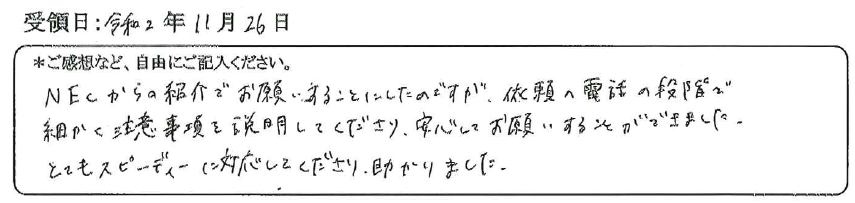 受領日:令和2年11月26日
*ご感想など、自由にご記入ください。
NECからの紹介でお願いすることにしたのですが、依頼の電話の段階で
細かく注意事項を説明してくださり、安心してお願いすることができました。
とてもスピーディーに対応してくださり、助かりました。